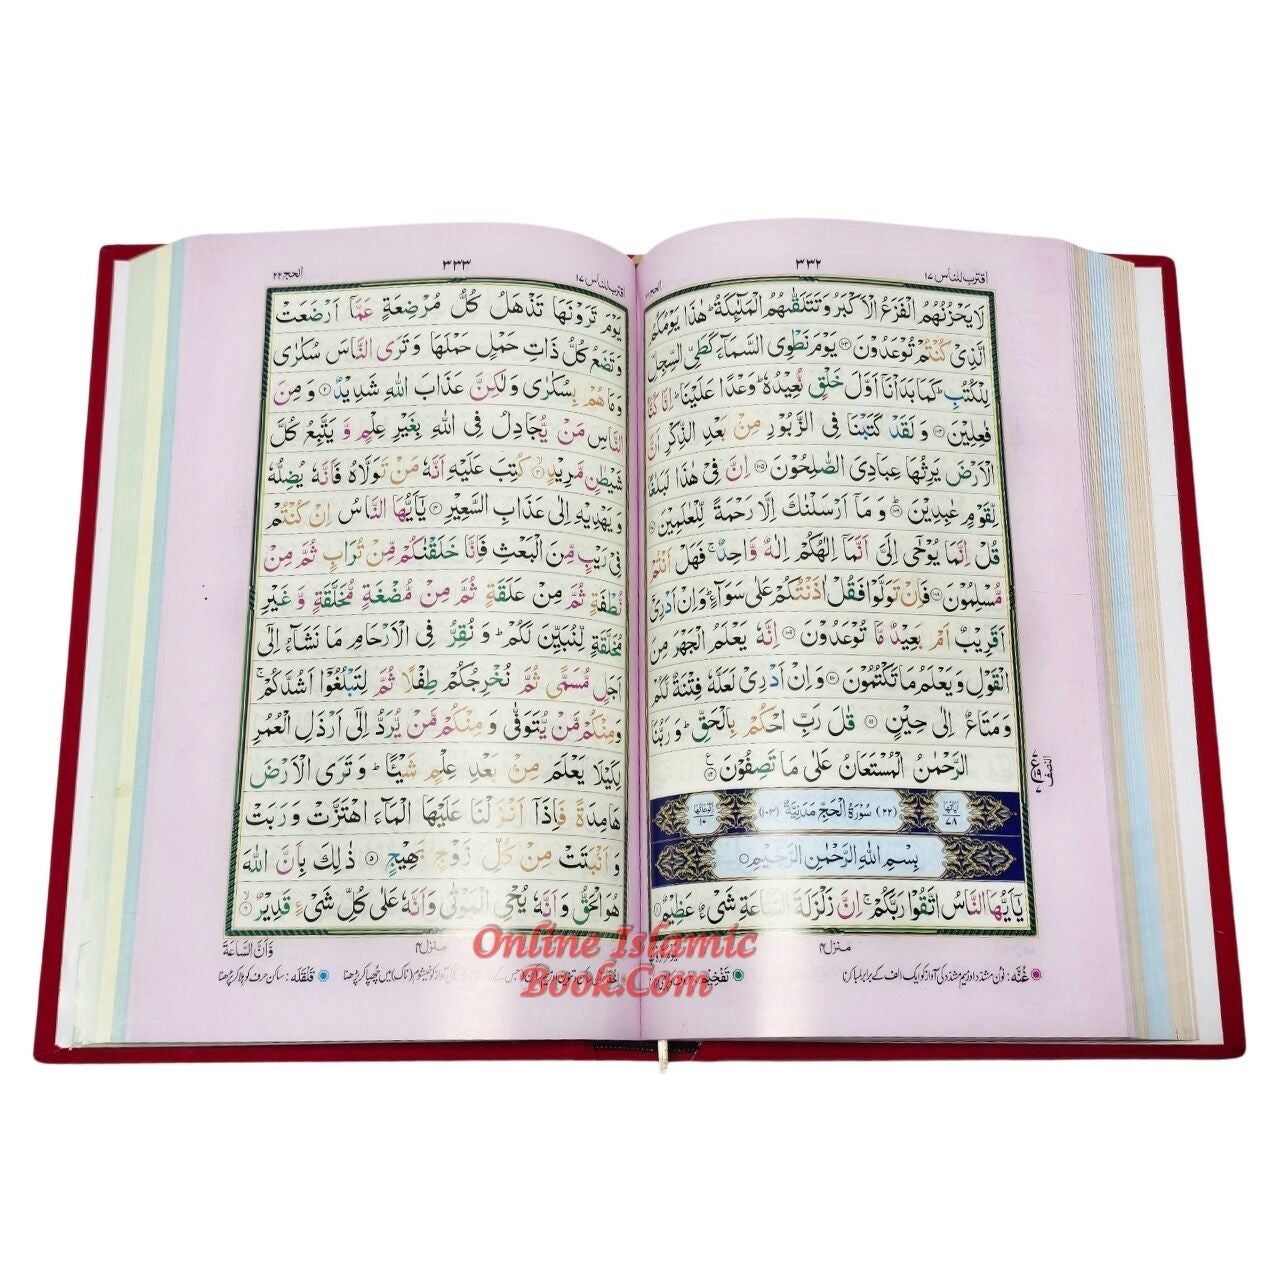 اقترب للناس ١٧
٣٣٢
لَا يَحْزُنُهُمُ الْفَزَعُ الْاَكْبَرُ وَتَتَلَقّٰىهُمُ الْمَلٰٓئِكَةُ ؕ هٰذَا يَوْمُكُمُ
الَّذِیْ كُنْتُمْ تُوْعَدُوْنَ ﴿۱۰۳﴾ یَوْمَ نَطْوِی السَّمَآءَ كَطَیِّ السِّجِلِّ
لِلْكُتُبِ ؕ كَمَا بَدَاْنَاۤ اَوَّلَ خَلْقٍ نُّعِیْدُهٗ ؕ وَعْدًا عَلَیْنَا ؕ اِنَّا كُنَّا
فٰعِلِیْنَ ﴿۱۰۴﴾ وَ لَقَدْ كَتَبْنَا فِی الزَّبُوْرِ مِنْۢ بَعْدِ الذِّكْرِ اَنَّ
الْاَرْضَ یَرِثُهَا عِبَادِیَ الصّٰلِحُوْنَ ﴿۱۰۵﴾ اِنَّ فِیْ هٰذَا لَبَلٰغًا
لِّقَوْمٍ عٰبِدِیْنَ ﴿۱۰۶﴾ وَ مَاۤ اَرْسَلْنٰكَ اِلَّا رَحْمَةً لِّلْعٰلَمِیْنَ
قُلْ اِنَّمَا یُوْحٰۤی اِلَیَّ اَنَّمَاۤ اِلٰهُكُمْ اِلٰهٌ وَّاحِدٌ ۚ فَهَلْ اَنْتُمْ
مُّسْلِمُوْنَ ﴿۱۰۸﴾ فَاِنْ تَوَلَّوْا فَقُلْ اٰذَنْتُكُمْ عَلٰی سَوَآءٍ ؕ وَاِنْ اَدْرِیْۤ
اَقَرِیْبٌ اَمْ بَعِیْدٌ مَّا تُوْعَدُوْنَ ﴿۱۰۹﴾ اِنَّهٗ یَعْلَمُ الْجَهْرَ مِنَ
الْقَوْلِ وَیَعْلَمُ مَا تَكْتُمُوْنَ ﴿۱۱۰﴾ وَاِنْ اَدْرِیْ لَعَلَّهٗ فِتْنَةٌ لَّكُمْ
وَ مَتَاعٌ اِلٰی حِیْنٍ ﴿۱۱۱﴾ قٰلَ رَبِّ احْكُمْ بِالْحَقِّ ؕ وَ رَبُّنَا
الرَّحْمٰنُ الْمُسْتَعَانُ عَلٰی مَا تَصِفُوْنَ ﴿۱۱۲﴾
اٰیَاتُهَا ٧٨ (٢٢) سُوْرَةُ الْحَجِّ مَدَنِیَّةٌ (١٠٣) رُكُوْعَاتُهَا ١٠
بِسْمِ اللهِ الرَّحْمٰنِ الرَّحِیْمِ
یٰۤاَیُّهَا النَّاسُ اتَّقُوْا رَبَّكُمْ ۚ اِنَّ زَلْزَلَةَ السَّاعَةِ شَیْءٌ عَظِیْمٌ ﴿۱﴾
النصف
منزل ٤
غُنَّه: نون مشدد اور میم مشدد کی آواز کو ایک الف کے برابر لمبا کرنا
تَفْخِیْم
اقترب للناس ١٧
٣٣٣
الحج ٢٢
یَوْمَ تَرَوْنَهَا تَذْهَلُ كُلُّ مُرْضِعَةٍ عَمَّاۤ اَرْضَعَتْ
وَ تَضَعُ كُلُّ ذَاتِ حَمْلٍ حَمْلَهَا وَ تَرَی النَّاسَ سُكٰرٰی
وَمَا هُمْ بِسُكٰرٰی وَلٰكِنَّ عَذَابَ اللهِ شَدِیْدٌ ﴿۲﴾ وَ مِنَ
النَّاسِ مَنْ یُّجَادِلُ فِی اللهِ بِغَیْرِ عِلْمٍ وَّ یَتَّبِعُ كُلَّ
شَیْطٰنٍ مَّرِیْدٍ ﴿۳﴾ كُتِبَ عَلَیْهِ اَنَّهٗ مَنْ تَوَلَّاهُ فَاَنَّهٗ یُضِلُّهٗ
وَ یَهْدِیْهِ اِلٰی عَذَابِ السَّعِیْرِ ﴿۴﴾ یٰۤاَیُّهَا النَّاسُ اِنْ كُنْتُمْ
فِیْ رَیْبٍ مِّنَ الْبَعْثِ فَاِنَّا خَلَقْنٰكُمْ مِّنْ تُرَابٍ ثُمَّ مِنْ
نُّطْفَةٍ ثُمَّ مِنْ عَلَقَةٍ ثُمَّ مِنْ مُّضْغَةٍ مُّخَلَّقَةٍ وَّ غَیْرِ
مُخَلَّقَةٍ لِّنُبَیِّنَ لَكُمْ ؕ وَ نُقِرُّ فِی الْاَرْحَامِ مَا نَشَآءُ اِلٰۤی
اَجَلٍ مُّسَمًّی ثُمَّ نُخْرِجُكُمْ طِفْلًا ثُمَّ لِتَبْلُغُوْۤا اَشُدَّكُمْ ۚ
وَمِنْكُمْ مَّنْ یُّتَوَفّٰی وَمِنْكُمْ مَّنْ یُّرَدُّ اِلٰۤی اَرْذَلِ الْعُمُرِ
لِكَیْلَا یَعْلَمَ مِنْۢ بَعْدِ عِلْمٍ شَیْـًٔا ؕ وَ تَرَی الْاَرْضَ
هَامِدَةً فَاِذَاۤ اَنْزَلْنَا عَلَیْهَا الْمَآءَ اهْتَزَّتْ وَ رَبَتْ
وَ اَنْۢبَتَتْ مِنْ كُلِّ زَوْجٍۭ بَهِیْجٍ ﴿۵﴾ ذٰلِكَ بِاَنَّ اللهَ
هُوَ الْحَقُّ وَ اَنَّهٗ یُحْیِ الْمَوْتٰی وَاَنَّهٗ عَلٰی كُلِّ شَیْءٍ قَدِیْرٌ ﴿۶﴾
منزل ٤
وَّاَنَّ السَّاعَةَ
قَلْقَلَه: ساکن حرف کو ہلا کر پڑھنا
Online Islamic
Book.Com